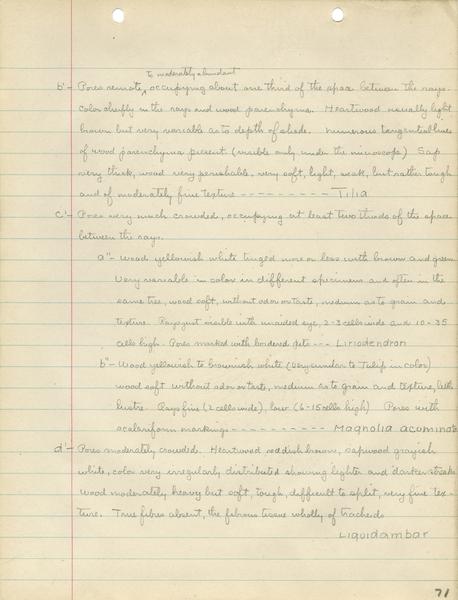 to moderately abundant
b'- Pores remote, occupying about one third of the space between the rays.
Color chiefly in the rays and wood parenchyma. Heartwood usually light
brown but very variable as to depth of shade. Numerous tangential lines
of wood parenchyma present (visible only under the microscope) Sap
very thick, wood very perishable, very soft, light, weak, but rather tough
and of moderately fine texture ---------- Tilia
c'- Pores very much crowded, occupying at least two thirds of the space
between the rays.
a"- Wood yellowish white tinged more or less with brown and green
Very variable in color in different specimens and often in the
same tree, wood soft, without odor or taste, medium as to grain and
texture. Rays just visible with unaided eye, 2-3 cells wide and 10-35
cells high. Pores marked with bordered pits --- Liriodendron
b"- Wood yellowish to brownish white (very similar to Tulip in color)
wood soft without odor or taste, medium as to grain and texture, little
lustre. Rays fine (2 cells wide), low (6-15 cells high) Pores with
scalariform markings --------- Magnolia acuminata
d'- Pores moderately crowded. Heartwood reddish brown, sapwood grayish
white, color very irregularly distributed showing lighter and darker streaks
Wood moderately heavy but soft, tough, difficult to split, very fine tex-
ture. True fibres absent, the fibrous tissue wholly of tracheids
Liquidambar
71